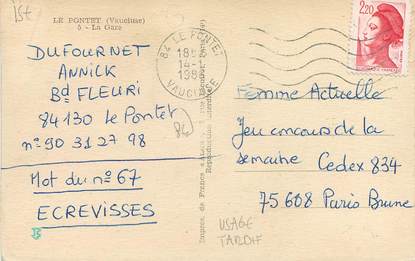 15t
LE PONTET (Vaucluse)
5 - La Gare
DUFOURNET
ANNICK
Bd FLEURI
84130 Le Pontet
n° 90 31 27 98
Mot du n° 67
ECREVISSES
84
84 LE PONTET
14-1
VAUCLUSE
2,20
Femme Actuelle
Jeu concours de la
semaine Cedex 834
75608 Paris Brune
USAGE
TARDIF